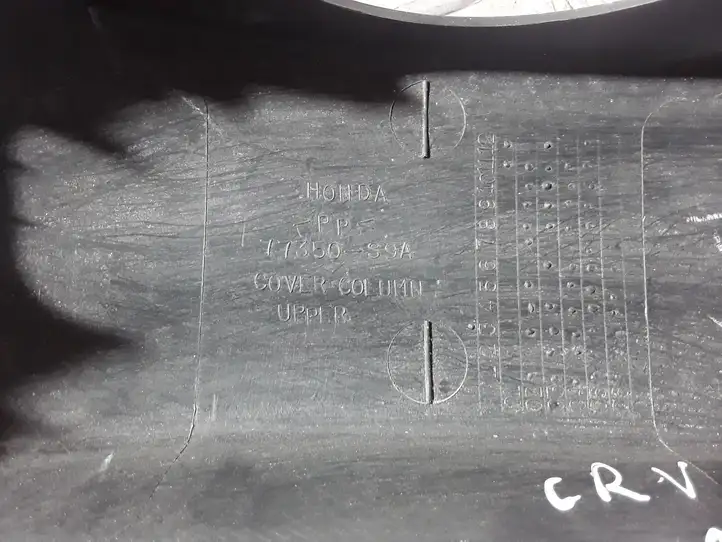 HONDA
>PP<
77350-S9A
COVER COLUMN
UPPER
1 2 3 4 5 6 7 8 9 10 11 12
CRV